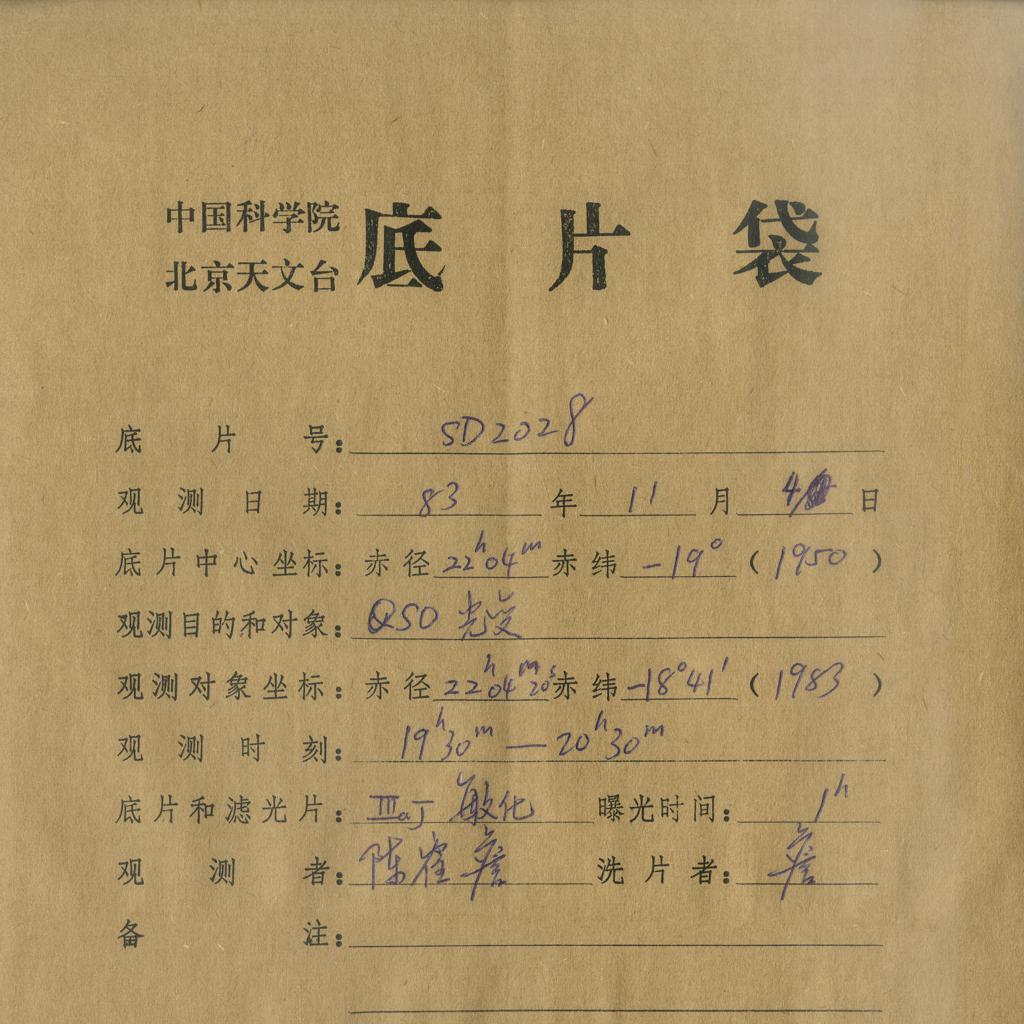 中国科学院
北京天文台
底片袋
底片号: SD2028
观测日期: 83年11月4日
底片中心坐标: 赤径22h04m赤纬-19°(1950)
观测目的和对象: QSO 光变
观测对象坐标: 赤径22h04m20s赤纬-18°41′(1983)
观测时刻: 19h30m—20h30m
底片和滤光片: IIIaJ 敏化 曝光时间: 1h
观测者: 陈 詹 洗片者: 詹
备注: